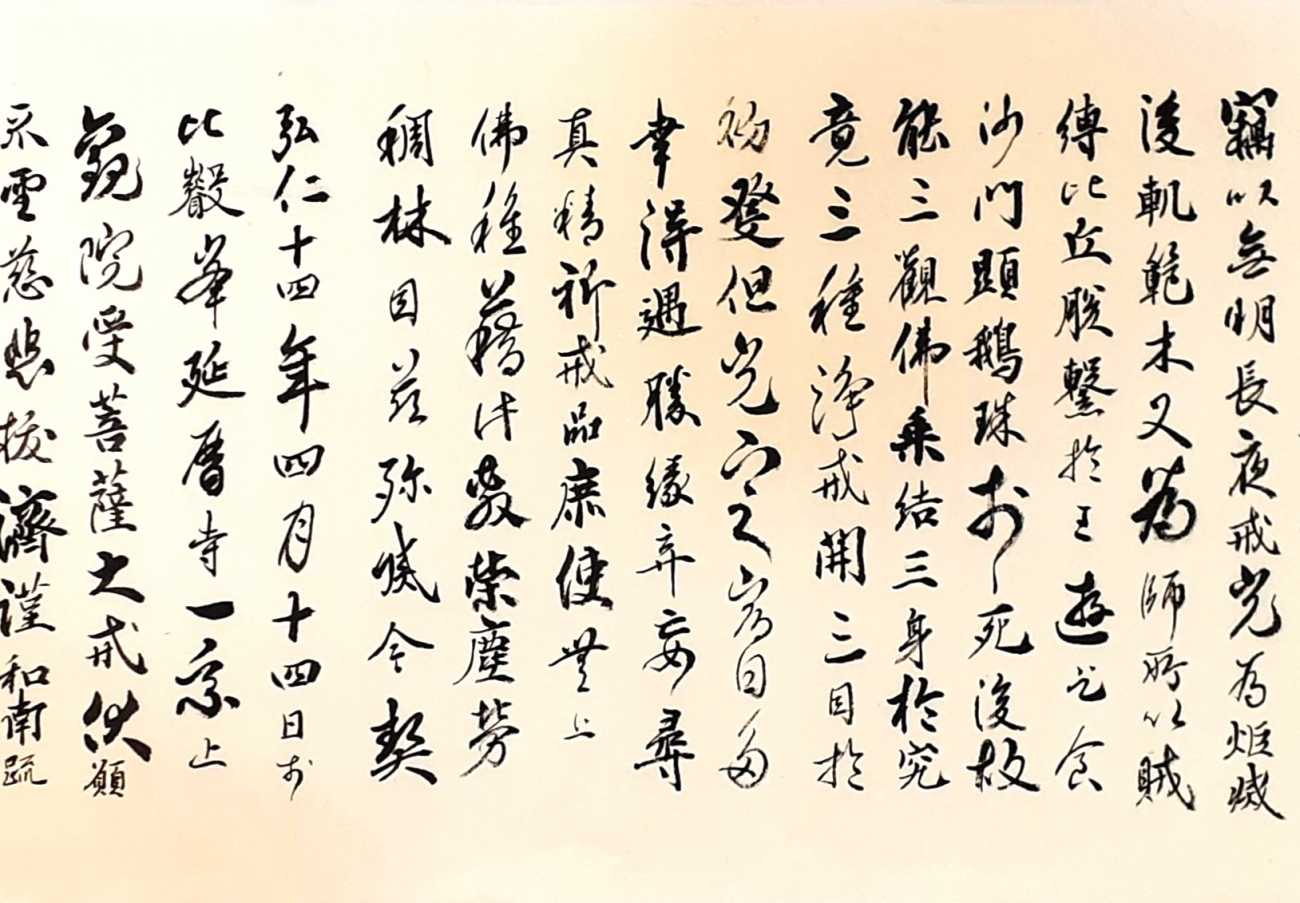 竊以無明長夜戒光為炬滅
後軌範木叉為師所以賊
縛比丘脫繫於王遊乞食
沙門顕鵝珠於死後故
能三観佛乗結三身於究
竟三種浄戒開三因於
初發但光之宿因多
幸得遇勝縁弃妄尋
真精祈戒品庶使無上
佛種藉此敷榮塵勞
稠林因茲殄滅今契
弘仁十四年四月十四日於
比叡峯延暦寺一乗止
觀院受菩薩大戒伏願
慈悲拔濟謹和南疏